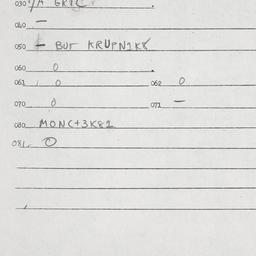 030 1/A GKIC.
040 —
050 — BUT KRUPNIKK
060 0 .
061 0 062 0
070 0 071 —
080 MONC+3K82
081. 0